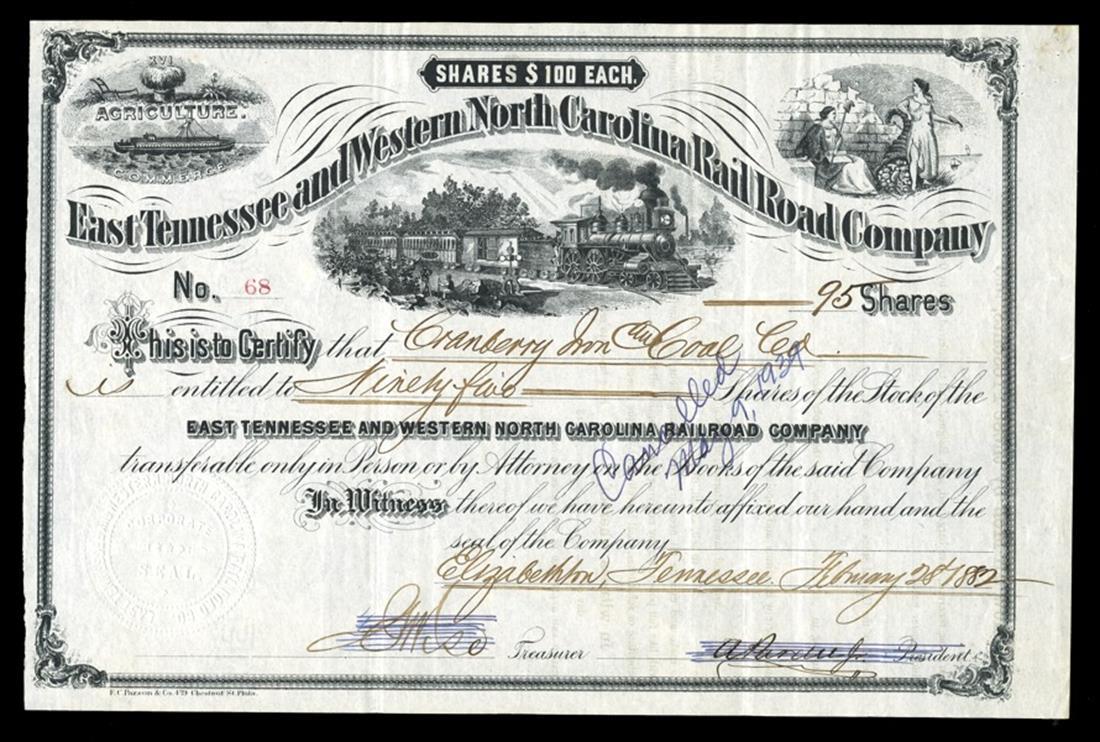 SHARES $ 100 EACH.
XVI
AGRICULTURE.
COMMERCE
East Tennessee and Western North Carolina Rail Road Company
No. 68
95 Shares
This is to Certify that Cranberry Iron and Coal Co
is entitled to Ninety five Shares of the Stock of the
EAST TENNESSEE AND WESTERN NORTH CAROLINA RAILROAD COMPANY
transferable only in Person or by Attorney on the Books of the said Company
Cancelled
May 9, 1939
In Witness thereof we have hereunto affixed our hand, and the
seal of the Company
Elizabethton, Tennessee, February 28th 1882
Treasurer
A Pardee Jr. President
SEAL.
F. C. Parson & Co. 429 Chestnut St. Phila.